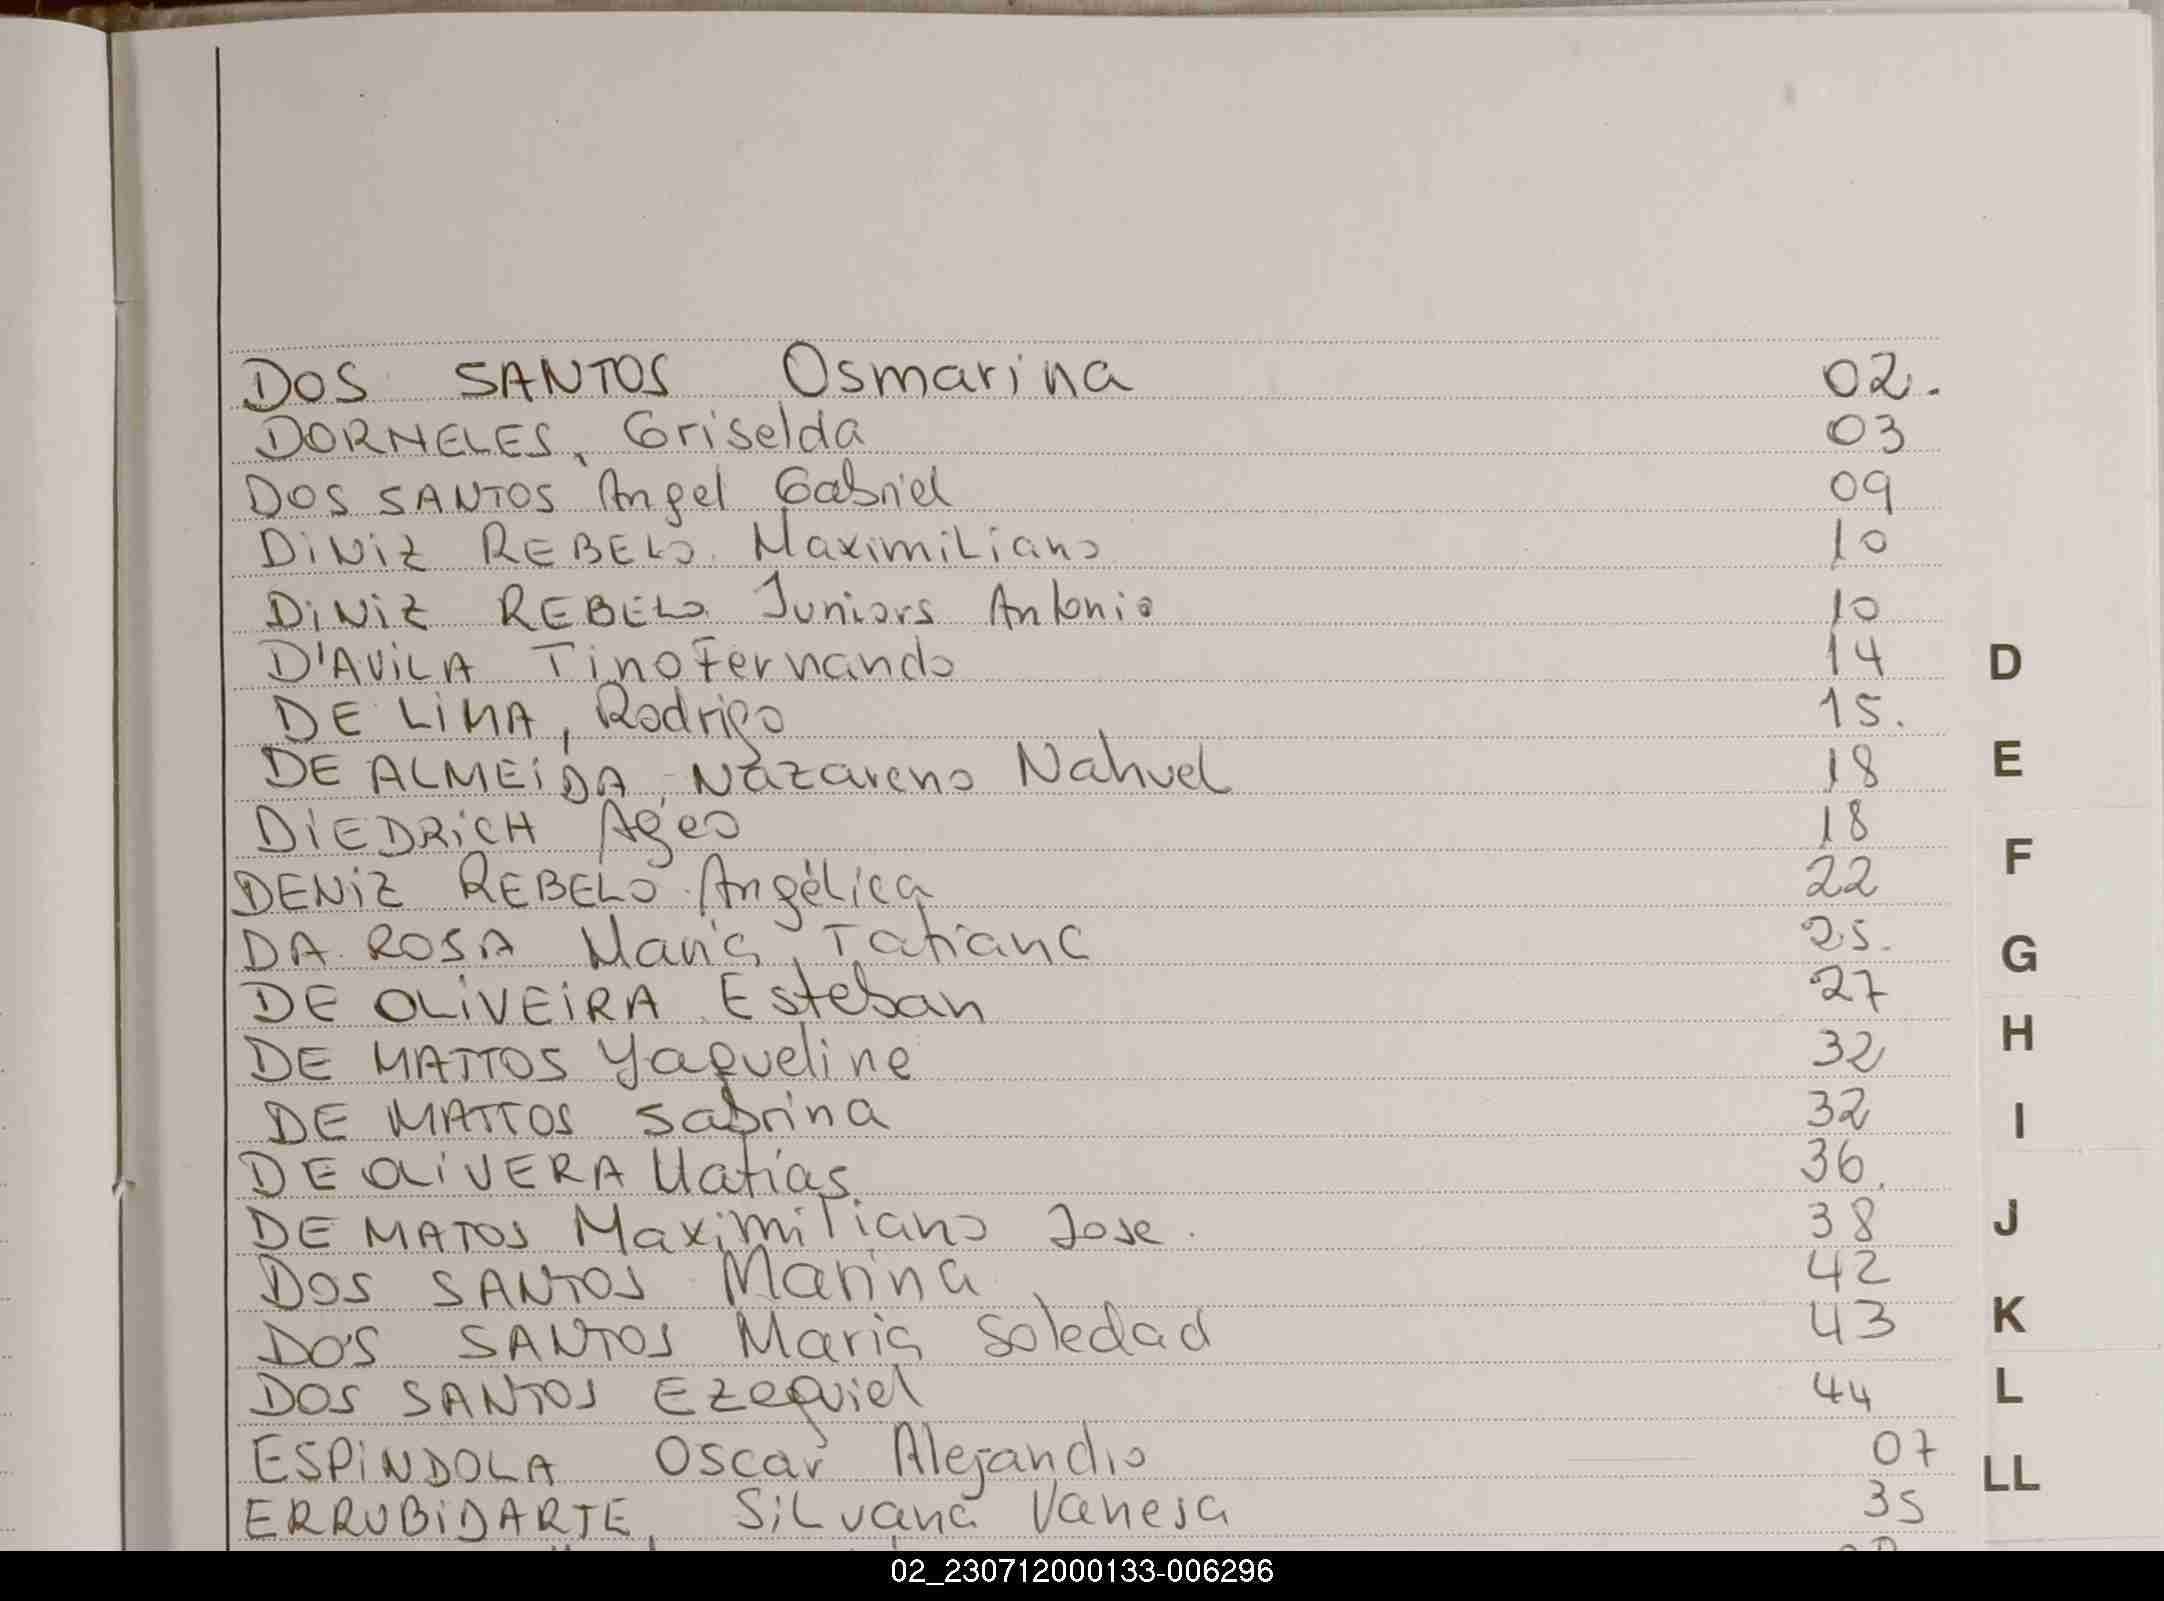 DOS SANTOS Osmarina 02.
DORNELES, Griselda 03
DOS SANTOS Angel Gabriel 09
DINIZ REBELO Maximiliano 10
DINIZ REBELO Juniors Antonio 10
D'AVILA Tino Fernando 14
D
DE LIMA, Rodrigo 15.
DE ALMEIDA, Nazareno Nahuel 18
E
DIEDRICH Ageo 18
F
DENIZ REBELO Angélica 22
DA ROSA Maria Tatiana 25.
G
DE OLIVEIRA Esteban 27
H
DE MATTOS Yaqueline 32
DE MATTOS Sabrina 32
I
DE OLIVERA Matías. 36.
DE MATOS Maximiliano Jose. 38
J
DOS SANTOS Marina 42
DOS SANTOS Maria Soledad 43
K
DOS SANTOS Ezequiel 44
L
ESPINDOLA Oscar Alejandro 07
LL
ERRUBIDARTE, Silvana Vanesa 35
02_230712000133-006296